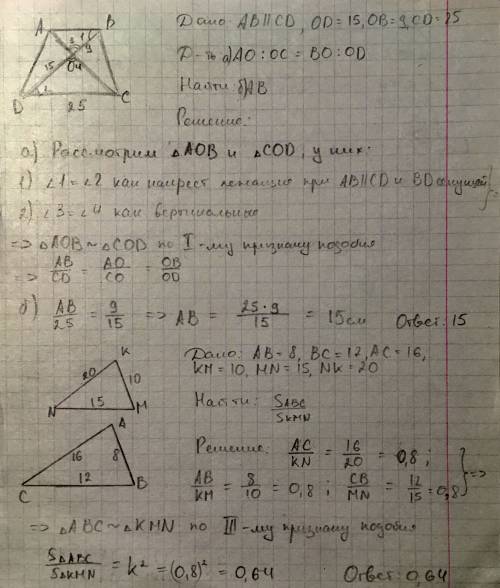 A B
Дано: AB||CD, OD=15, OB=9, CD=25
3 1 9
15 O 4
Д-ть а) AO:OC=BO:OD
Найти: б) AB
2
D 25 C
Решение:
а) Рассмотрим △AOB и △COD, у них:
1) ∠1=∠2 как накрест лежащие при AB||CD и BD секущей
2) ∠3=∠4 как вертикальные
=> △AOB ~ △COD по I-му признаку подобия
=> AB/CD = AO/CO = OB/OD
б) AB/25 = 9/15 => AB = 25·9/15 = 15см Ответ: 15
K
20 10
N 15 M
Дано: AB=8, BC=12, AC=16,
KM=10, MN=15, NK=20
Найти: SABC/SKMN
A
16 8
C 12 B
Решение: AC/KN = 16/20 = 0,8;
AB/KM = 8/10 = 0,8; CB/MN = 12/15 = 0,8 } =>
=> △ABC ~ △KMN по III-му признаку подобия
S△ABC/S△KMN = k² = (0,8)² = 0,64 Ответ: 0,64